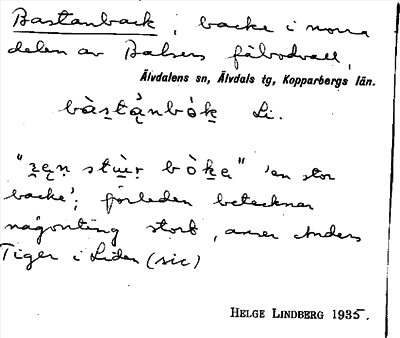 Bastanback, backe i norra
delen av Balsers fäbodvall,
Älvdalens sn, Älvdals tg, Kopparbergs län.
bàs̠tą̀nbòk̠ Li.
"z̠ęn̠ stùr̠ bòk̠ę" 'en stor
backe'; förleden betecknar
någonting stort, anser Anders
Tiger i Liden (sic)
HELGE LINDBERG 1935.